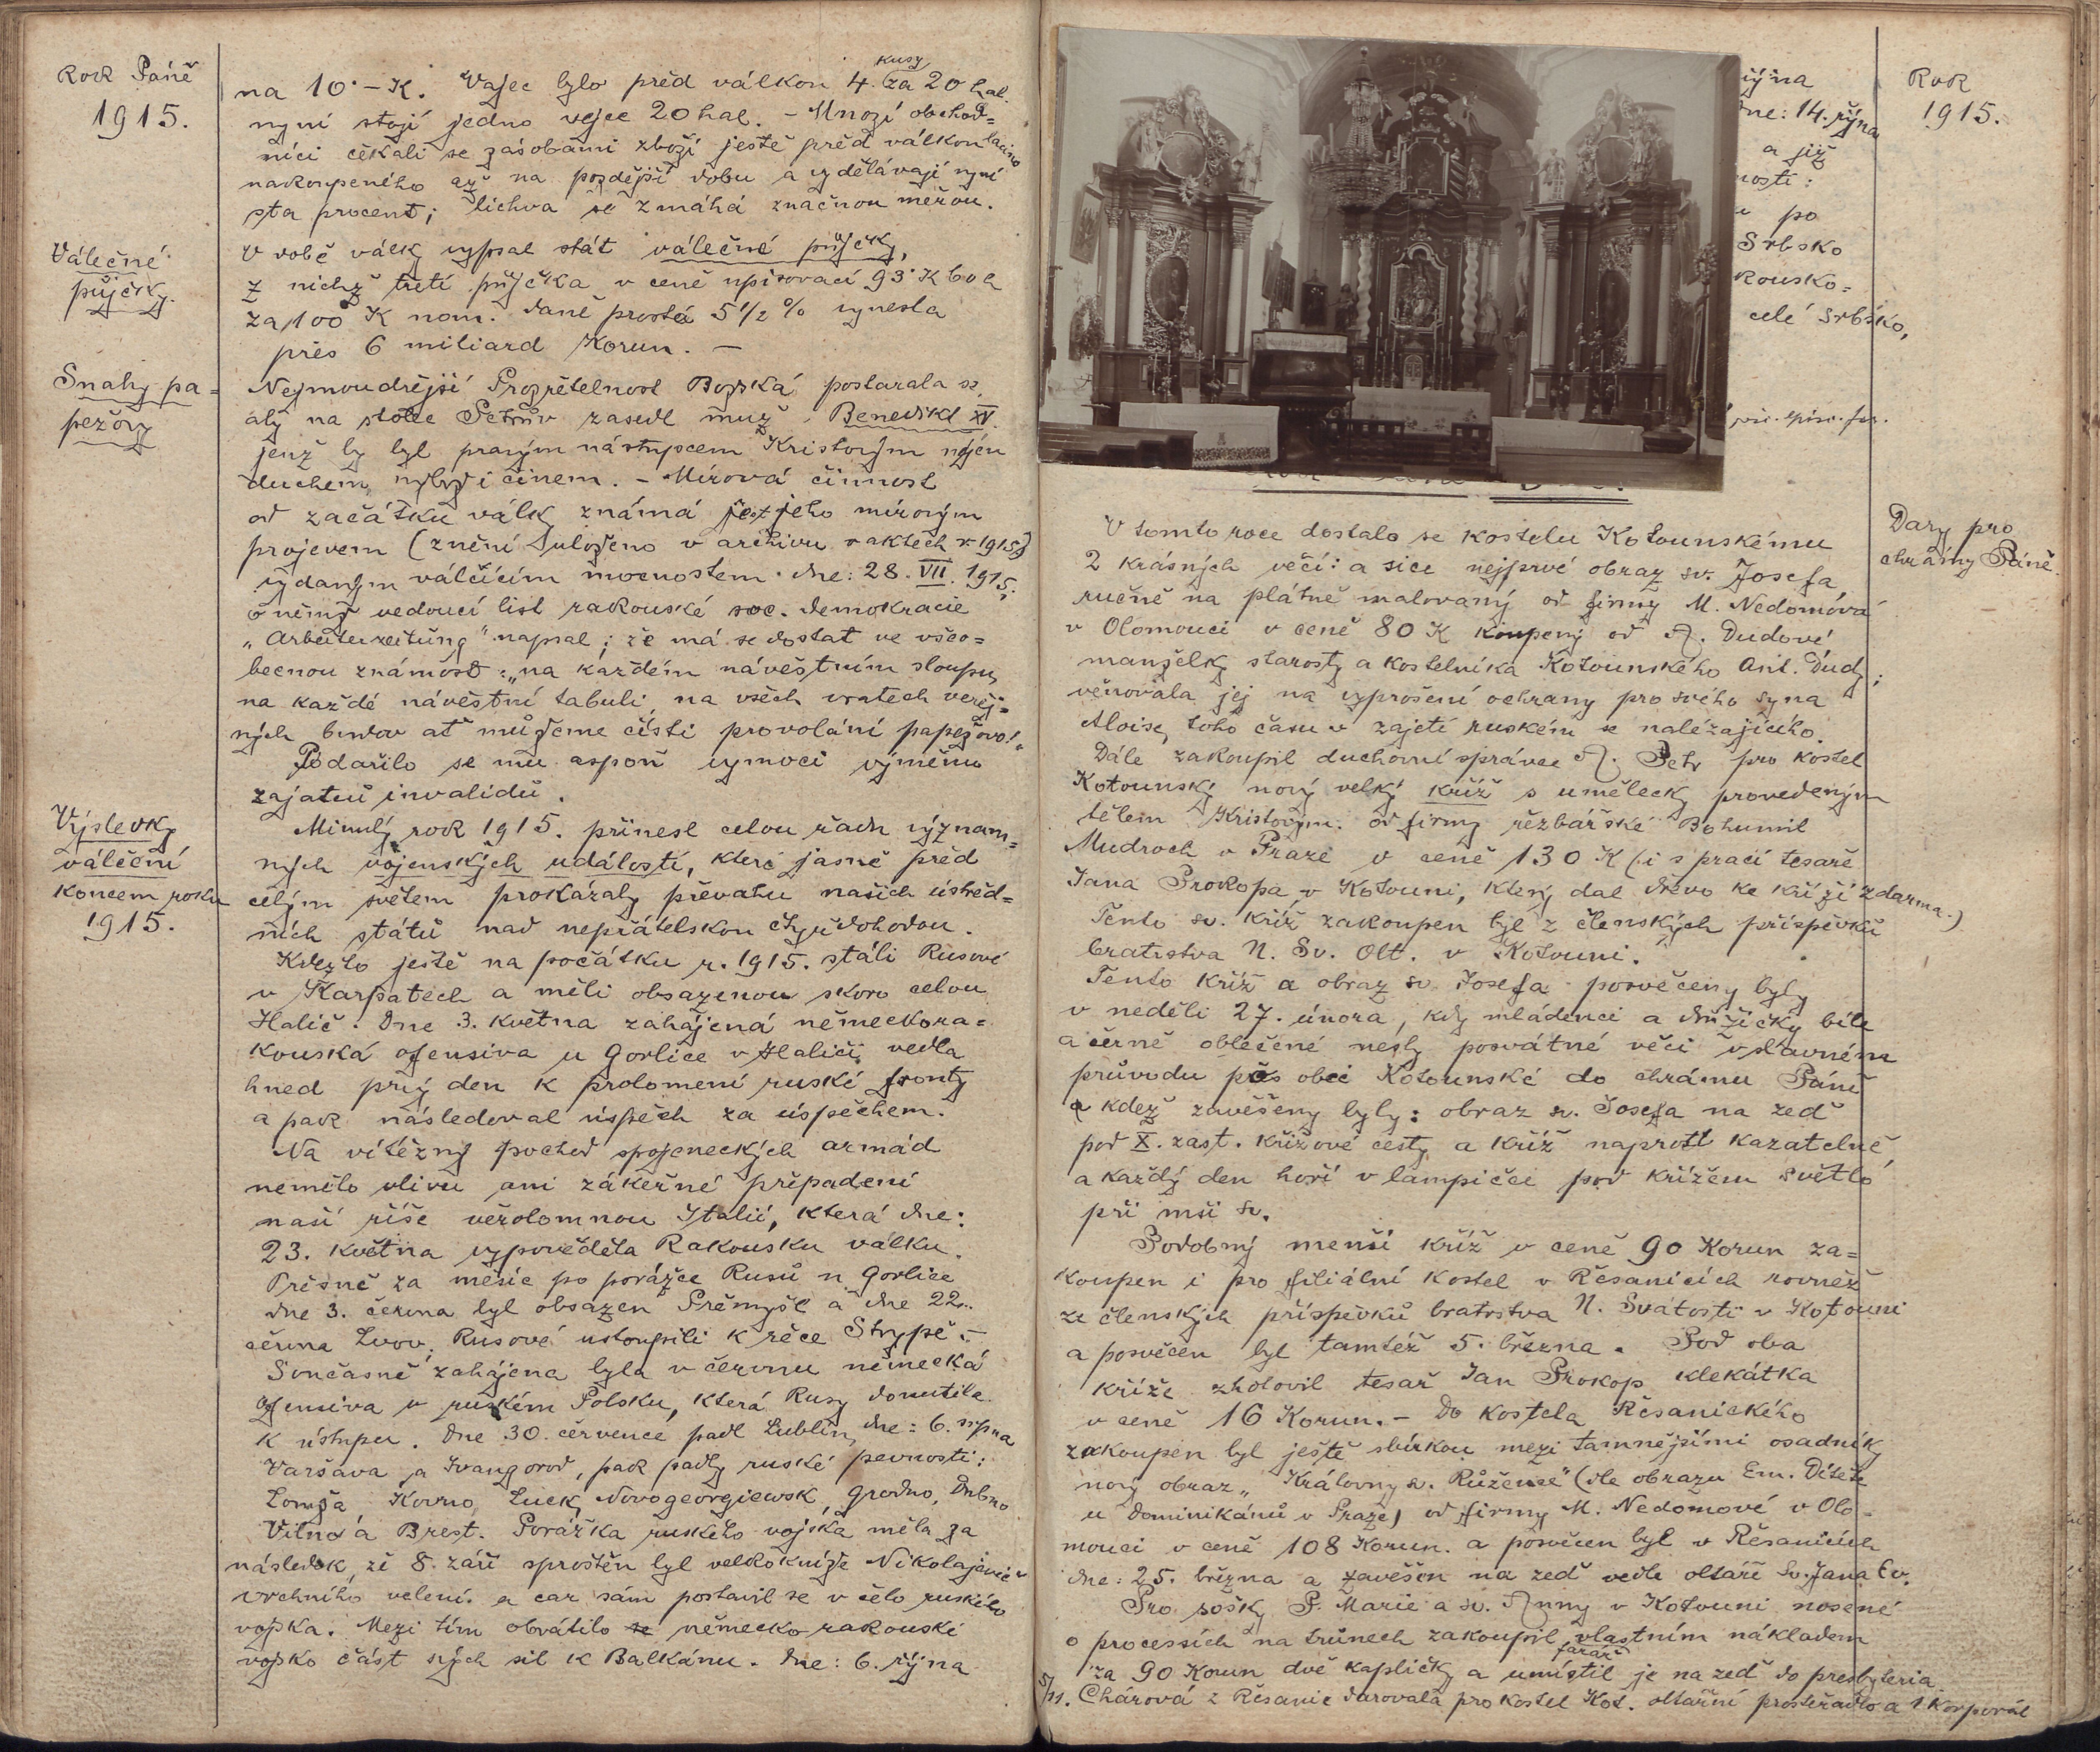 Rok Páně
1915.
na 10·– K. Vajec bylo před válkou 4. kusy za 20 hal.
nyní stojí jedno vejce 20 hal. – Mnozí obchod=
níci čekali se zásobami zboží ještě před válkou lacino
nakoupeného až na pozdější dobu a vydělávají nyní
sta procent; lichva se zmáhá značnou měrou.
Válečné
půjčky.
V době války vypsal stát válečné půjčky,
z nichž třetí půjčka v ceně upisovací 93·K 60 h
za 100 K nom. daně prostá 5 1/2 % vynesla
přes 6 miliard Korun. –
Snahy pa=
pežovy
Nejmoudřejší Prozřetelnost Božská postarala se,
aby na stolec Petrův zasedl muž, Benedikt XV.
jenž by byl pravým nástupcem Kristovým nejen
duchem, nýbrž i činem. – Mírová činnost
od začátku války známá jest jeho mírovým
projevem (znění uloženo v archivu v aktech r. 1915)
vydaným válčícím mocnostem dne: 28. VII. 1915;
o němž vedoucí list rakouské soc. demokracie
„Arbeiterzeitung" napsal; že má se dostat ve všeo=
becnou známost: „na každém návěstním sloupu,
na každé návěstní tabuli, na všech vratech veřej=
ných budov ať můžeme čísti provolání papežovo!"
Podařilo se mu aspoň vymoci výměnu
zajatců invalidů.
Výsledky
váleční
koncem roku
1915.
Minulý rok 1915. přinesl celou řadu význam=
ných vojenských událostí, které jasně před
celým světem prokázaly převahu našich ústřed=
ních států nad nepřátelskou čtyřdohodou.
Kdežto ještě na počátku r. 1915. stáli Rusové
v Karpatech a měli obsazenou skoro celou
Halič. Dne 3. května zahájená německora=
kouská ofensiva u Gorlice v Haliči, vedla
hned prvý den k prolomení ruské fronty
a pak následoval úspěch za úspěchem.
Na vítězný pochod spojeneckých armád
nemělo vlivu ani zákeřné přepadení
naší říše věrolomnou Italií, která dne:
23. května vypověděla Rakousku válku.
Přesně za měsíc po porážce Rusů u Gorlice
dne 3. června byl obsazen Přemyšl a dne 22.
června Lvov, Rusové ustoupili k řece Strypě. –
Současně zahájena byla v červnu německá
ofensiva v ruském Polsku, která Rusy donutila
k ústupu. Dne 30. července padl Lublin, dne: 6. srpna
Varšava a Ivangorod, pak padly ruské pevnosti:
Lomža, Kovno, Luck, Novogeorgiewsk, Grodno, Dubno
Vilna a Brest. Porážka ruského vojska měla za
následek, že 8. září sproštěn byl velkokníže Nikolajevič
vrchního velení. a car sám postavil se v čelo ruského
vojska. Mezi tím obrátilo německo rakouské
vojsko část svých sil k Balkánu. Dne: 6. října
Rok
1915.
ne: 14. října
a již
nosti:
po
Srbsko
kousko=
celé Srbsko,
Dary pro
chrámy Páně.
V tomto roce dostalo se kostelu Kotounskému
2 krásných věcí: a sice nejprvé obraz sv. Josefa
ručně na plátně malovaný od firmy M. Nedomová
v Olomouci v ceně 80 K koupený od A. Dudové
manželky starosty a kostelníka Kotounského Ant. Dudy;
věnovala jej na vyprošení ochrany pro svého syna
Aloise, toho času v zajetí ruském se nalézajícího.
Dále zakoupil duchovní správce A. Petr pro kostel
Kotounský nový velký kříž s umělecky provedeným
tělem Kristovým. od firmy řezbářské Bohumil
Mudroch v Praze v ceně 130 K (i s prací tesaře
Jana Prokopa v Kotouni, který dal dřevo ke kříži zdarma.)
Tento sv. kříž zakoupen byl z členských příspěvků
bratrstva N. Sv. Olt. v Kotouni.
Tento kříž a obraz sv. Josefa posvěceny byly
v neděli 27. února, kdy mládenci a družičky bíle
a černě oblečené nesly posvátné věci v slavném
průvodu přes obec Kotounské do chrámu Páně
a kdež zavěšeny byly: obraz sv. Josefa na zeď
pod X. zast. křížové cesty, a kříž naproti kazatelně,
a každý den hoří v lampičce pod křížem světlo
při mši sv.
Podobný menší kříž v ceně 90 Korun za=
koupen i pro filiální kostel v Řesanicích rovněž
ze členských příspěvků bratrstva N. Svátosti v Kotouni
a posvěcen byl tamtéž 5. března. Pod oba
kříže zhotovil tesař Jan Prokop klekátka
v ceně 16 Korun. – Do kostela Řesanického
zakoupen byl ještě sbírkou mezi tamnějšími osadníky
nový obraz „Královny sv. Růžence" (dle obrazu Em. Dítěte
u Dominikánů v Praze) od firmy M. Nedomové v Olo-
mouci v ceně 108 Korun. a posvěcen byl v Řesanicích
dne: 25. března a zavěšen na zeď vedle oltáře Sv. Jana Ev.
Pro sošky P. Marie a sv. Anny v Kotouni nosené
o processích na trůnech zakoupil farář vlastním nákladem
za 90 Korun dvě kapličky a umístil je na zeď do presbyteria.
5/11. Chárová z Řesanic darovala pro kostel Kot. oltářní prostěradlo a 1 korporál